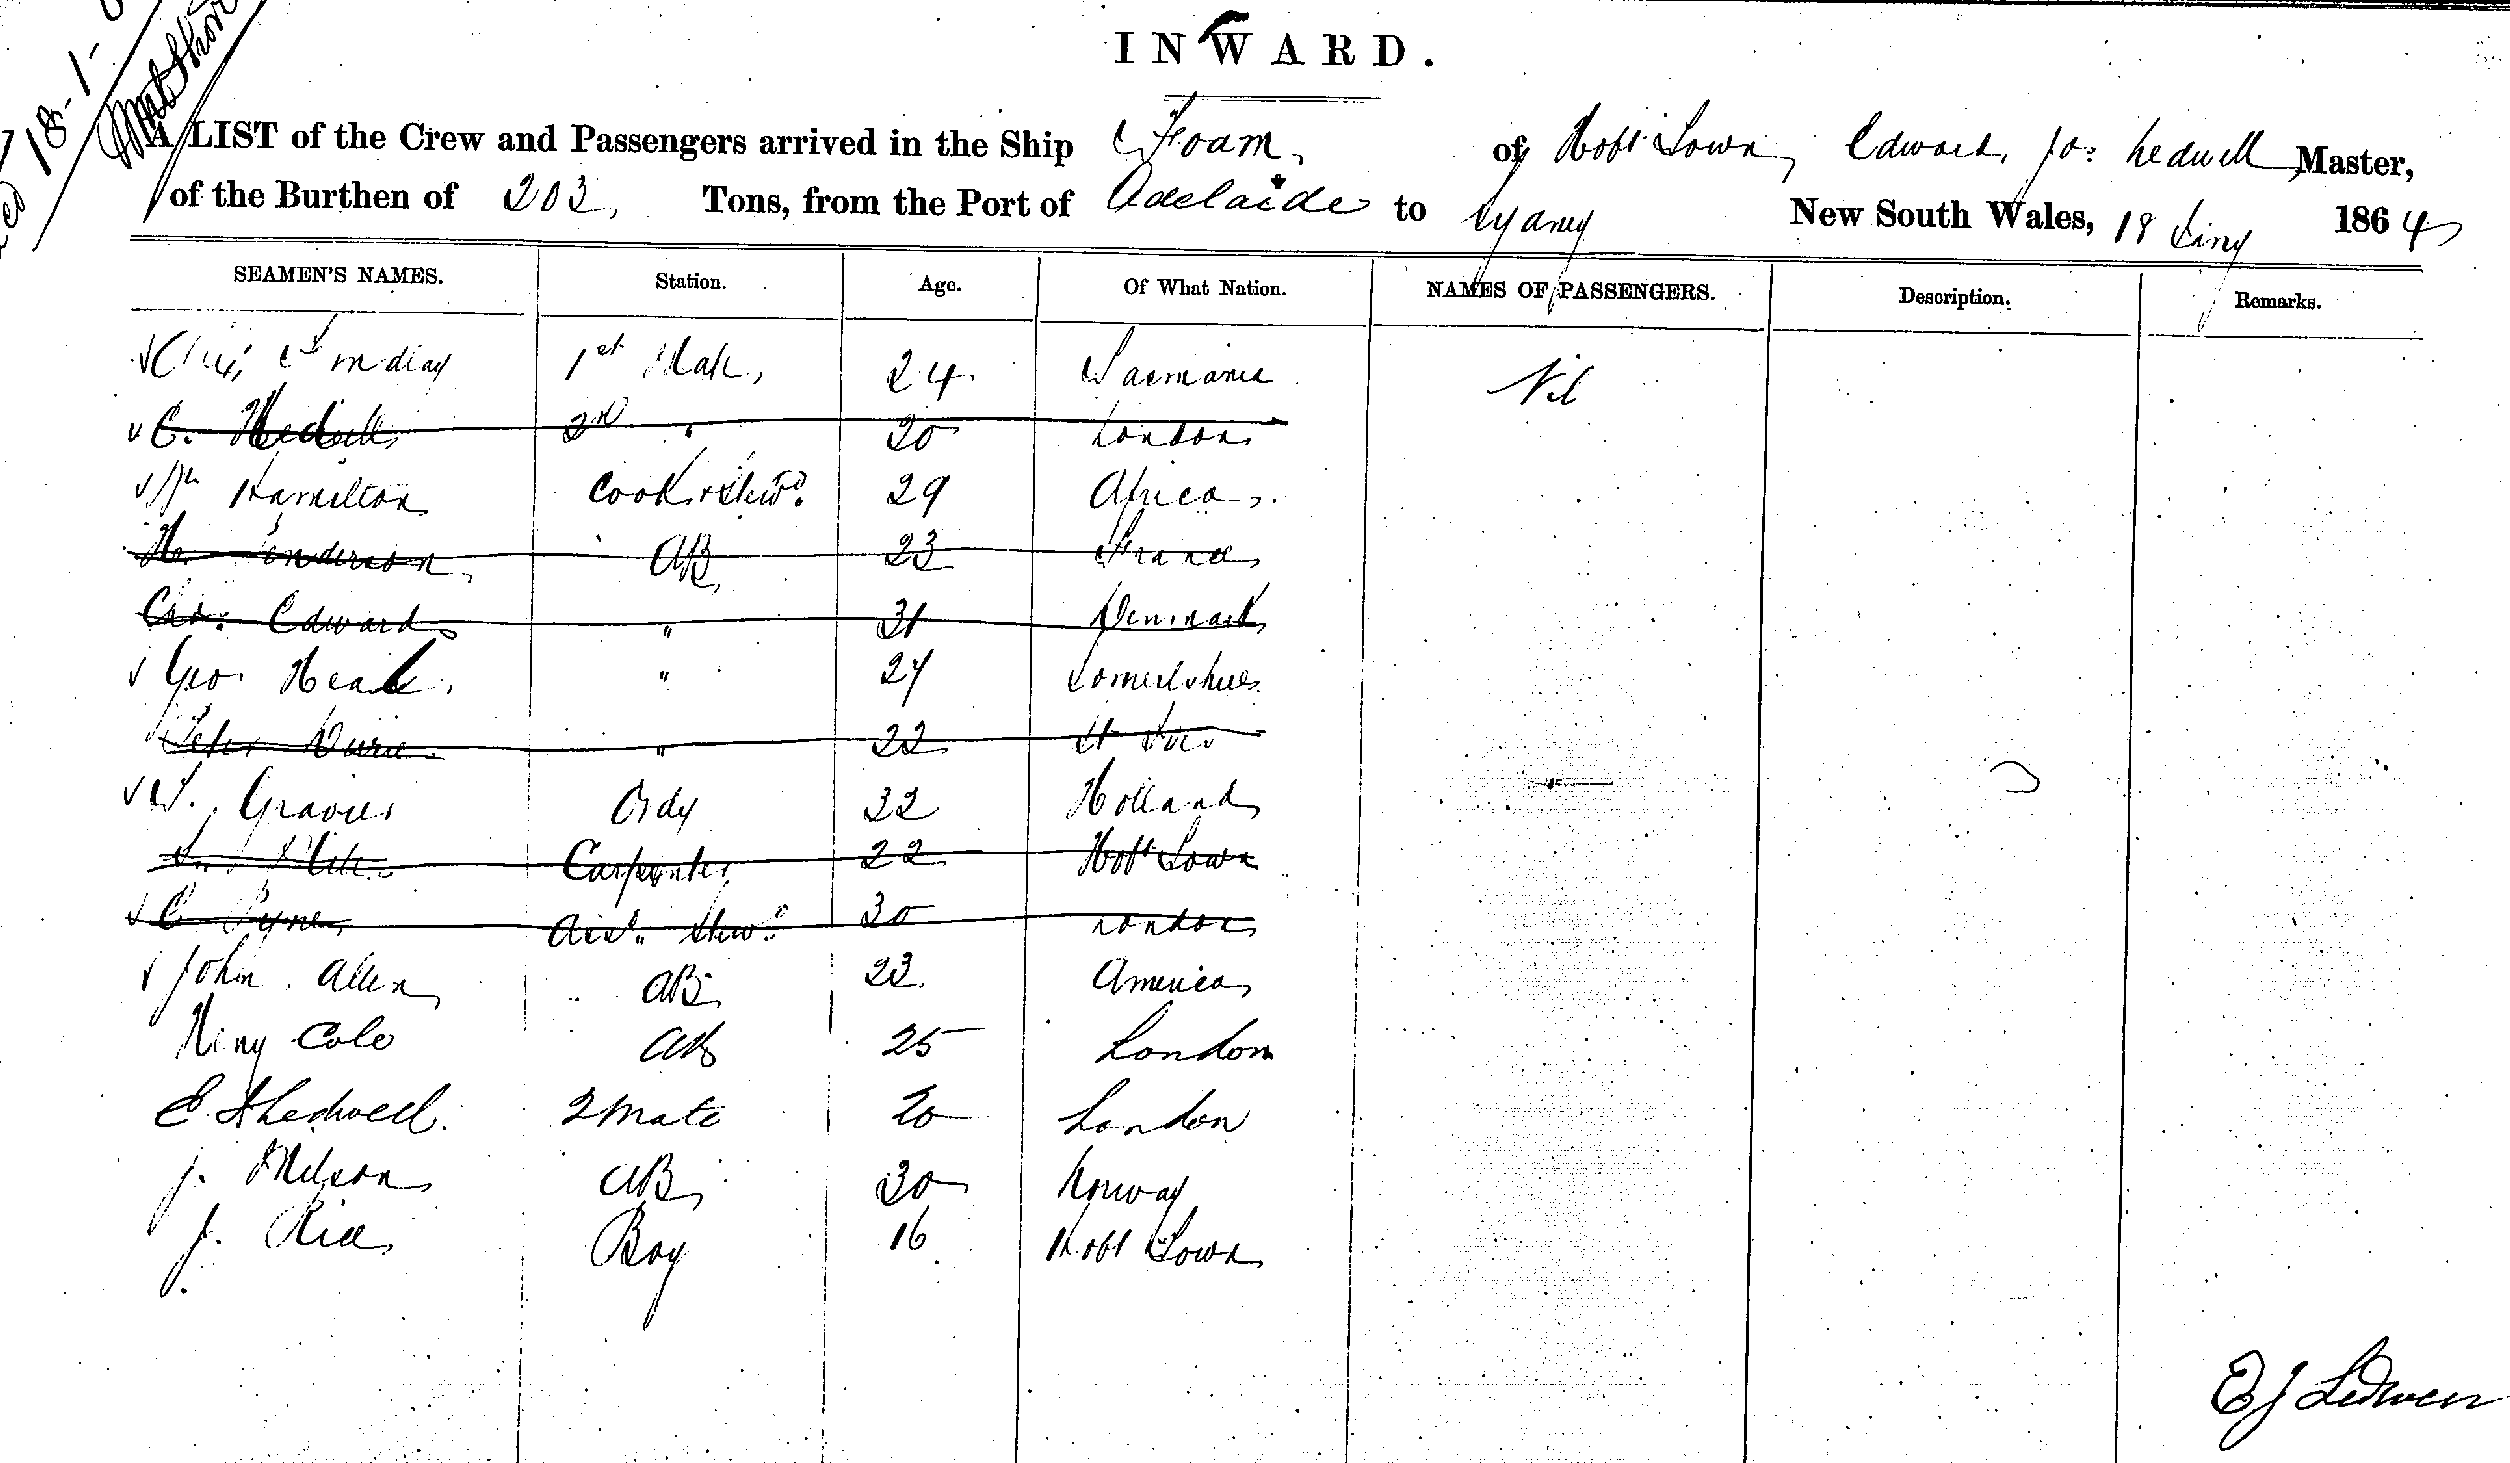 18-1-
INWARD.
A LIST of the Crew and Passengers arrived in the Ship Foam, of Hobt Town, Edward Jas: Ledwell, Master,
of the Burthen of 203, Tons, from the Port of Adelaide to Sydney New South Wales, 18 Jany 1864
SEAMEN'S NAMES. Station. Age. Of What Nation. NAMES OF PASSENGERS. Description. Remarks.
1st Mate, 24 Tasmania Nil
E. 2nd " 20 London
Wm Hamilton Cook & Stwd. 29 Africa.
H. Henderson AB 23 France
Edward " 31 Denmark
Geo. Heal " 24 Somersetshire
Peter " 22
Ordy 32 Holland
Carpenter 22 Hobt Town
C Pyne Stwd. 30 London
John Allen AB 23 America
Heny Cole AB 25 London
E. Ledwell. 2 Mate 20 London
J. Nilson AB 30 Norway
J. Rice Boy 16 Hobt Town
E J Ledwell